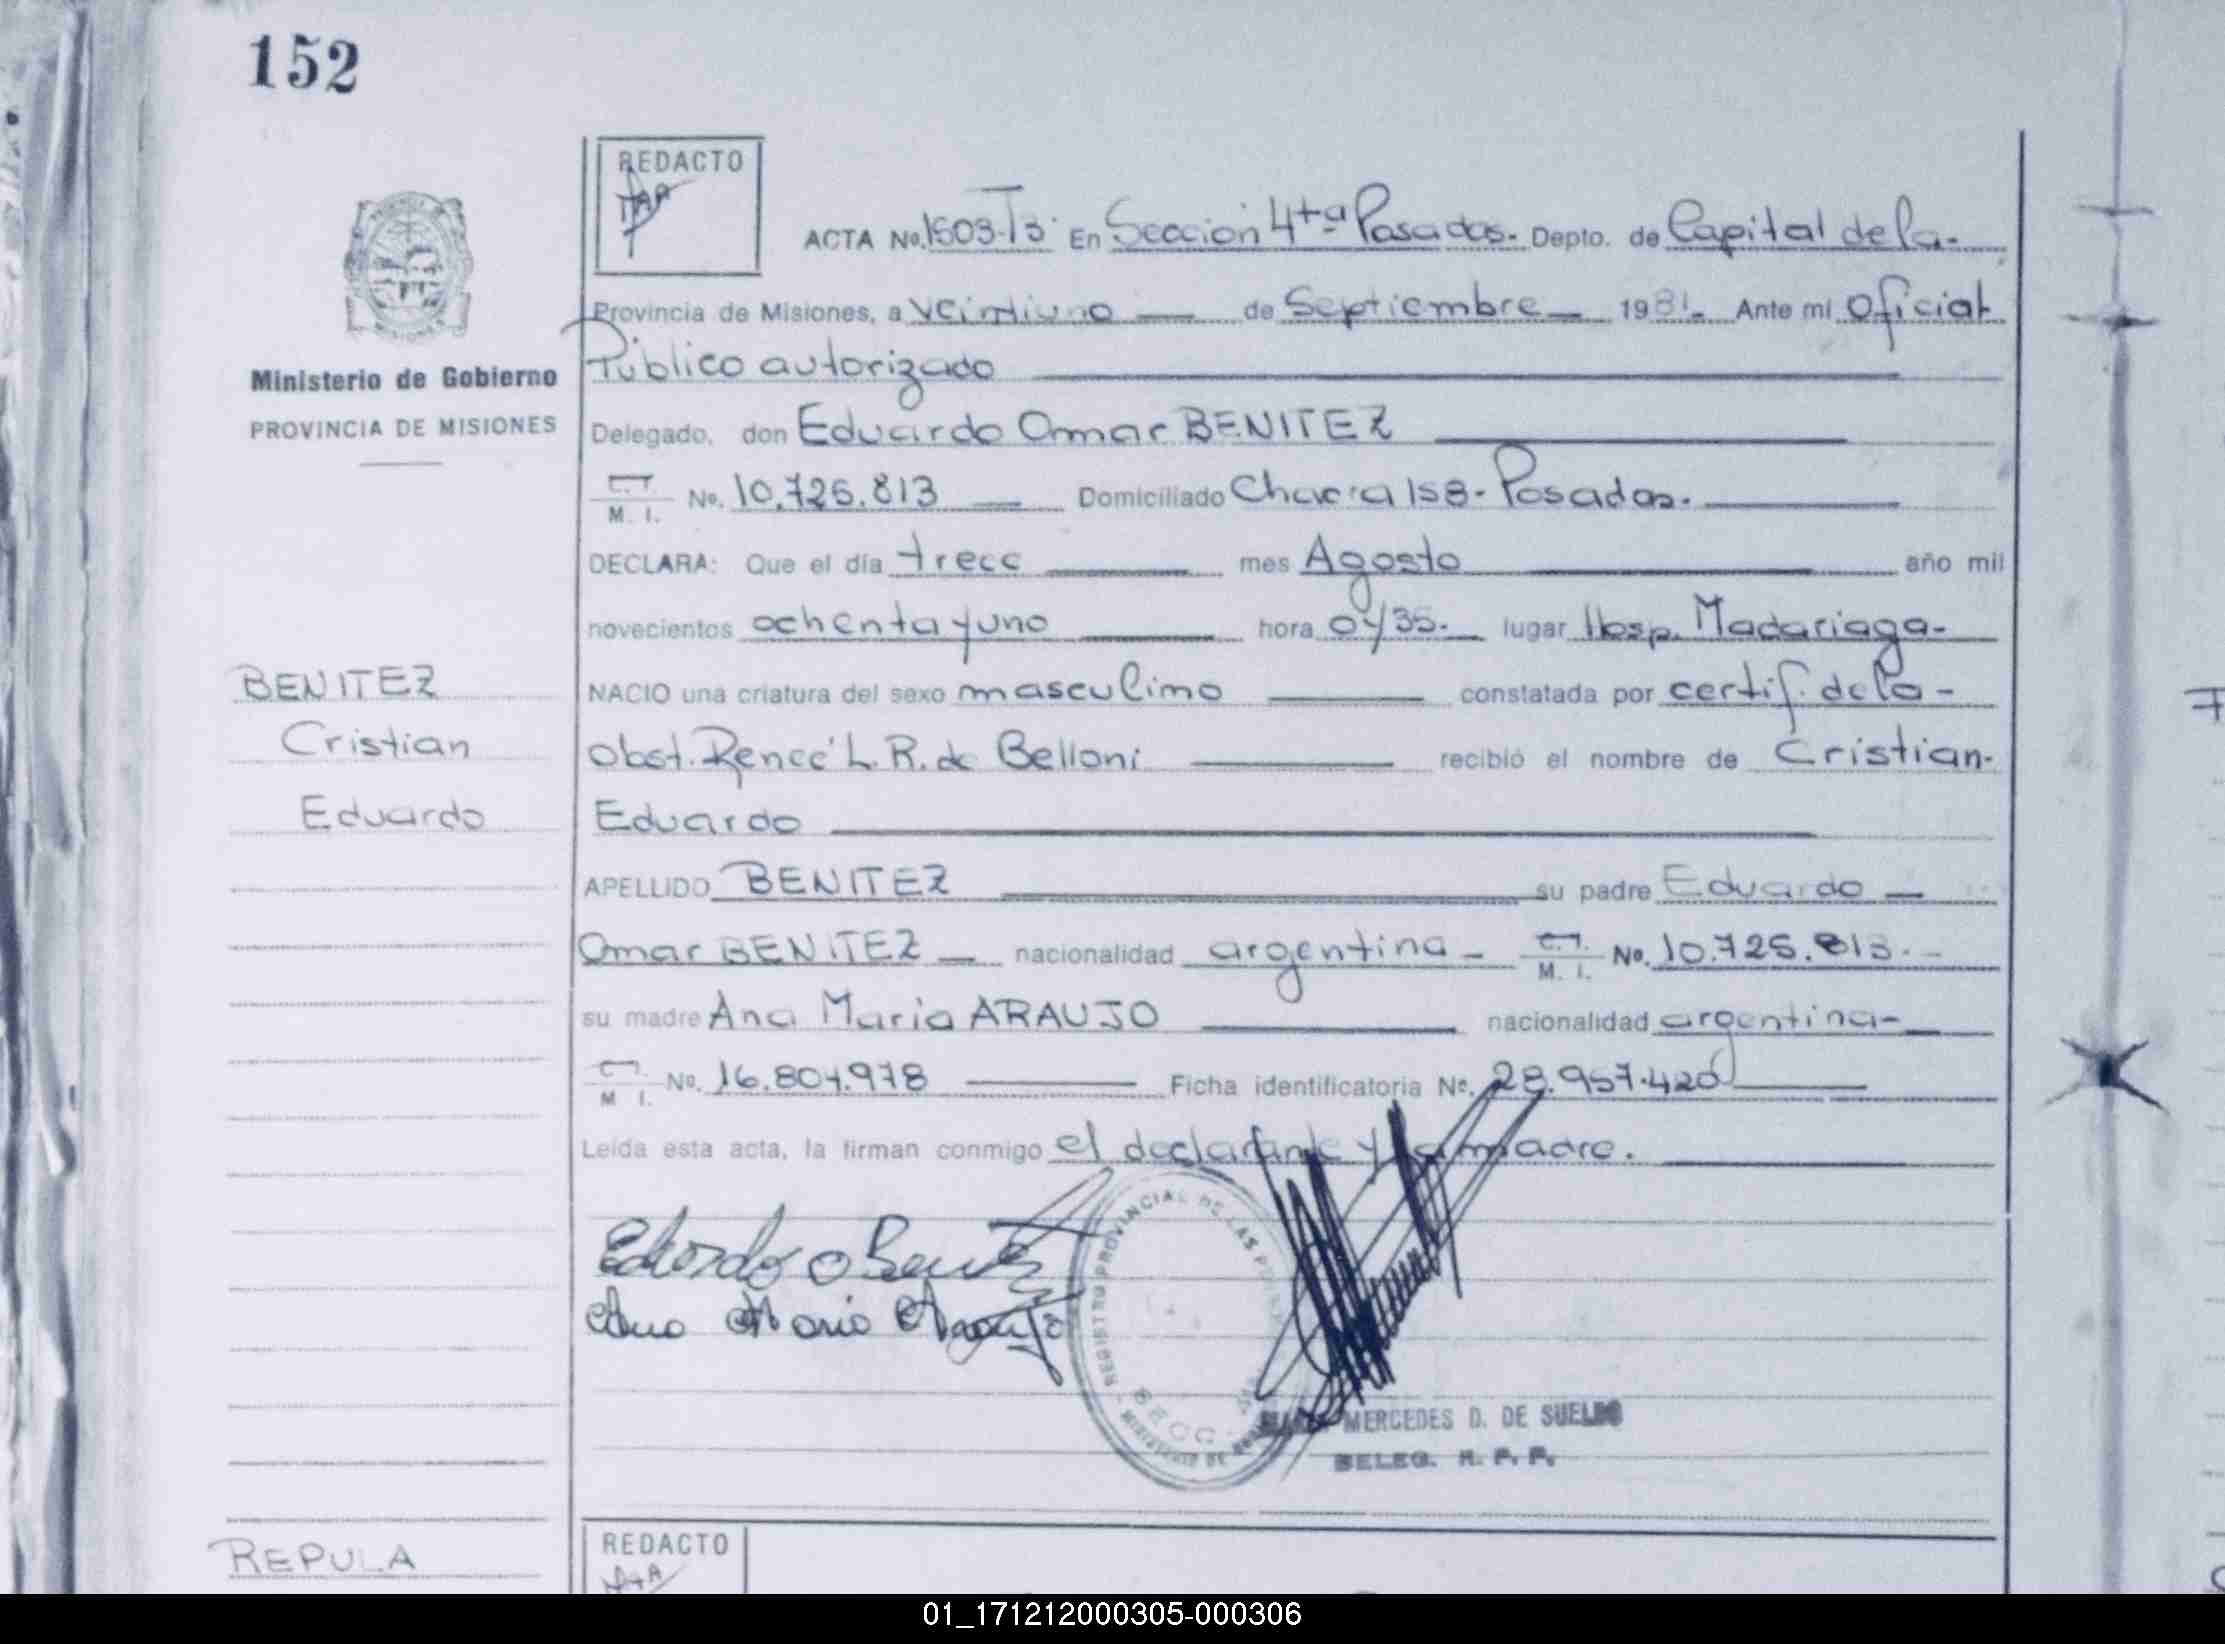 152
REDACTO
ACTA No. 1503-T3 En Sección 4ta Posadas. Depto. de Capital de la-
Provincia de Misiones, a veintiuno de Septiembre 1981. Ante mi Oficial
Público autorizado
Ministerio de Gobierno
PROVINCIA DE MISIONES
Delegado, don Eduardo Omar BENITEZ
M. I. No. 10.725.813 Domiciliado Chacra 158- Posadas.
DECLARA: Que el día trece mes Agosto año mil
novecientos ochenta y uno hora 04/35. lugar Hosp. Madariaga-
BENITEZ
Cristian
Eduardo
NACIO una criatura del sexo masculino constatada por certif. de la-
Obst. Reneé L. R. de Belloni recibió el nombre de Cristian-
Eduardo
APELLIDO BENITEZ su padre Eduardo
Omar BENITEZ nacionalidad argentina - M. I. No. 10.725.813.-
su madre Ana Maria ARAUJO nacionalidad argentina-
M. I. No. 16.804.978 Ficha identificatoria No. 28.957.420
Leída esta acta, la firman conmigo el declarante y la madre.
Eduardo O Benitez
Ana Maria Araujo
REGISTRO PROVINCIAL DE LAS
MERCEDES D. DE SUELDO
DELEG. R. P. P.
REPULA
REDACTO
01_171212000305-000306